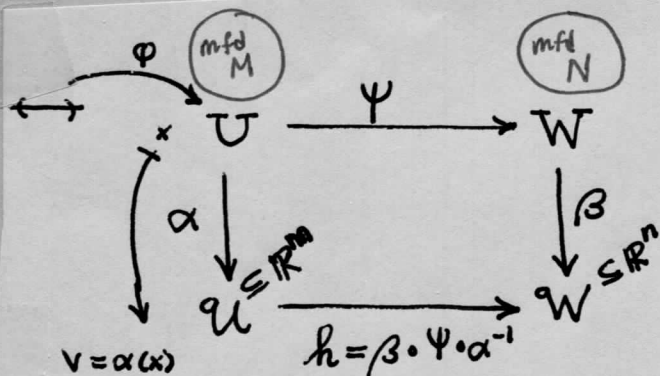 φ
mfd
M
mfd
N
x
U
Ψ
W
α
β
𝒰 ⊆ ℝᵐ
𝒲 ⊆ ℝⁿ
v = α(x)
h = β • Ψ • α⁻¹